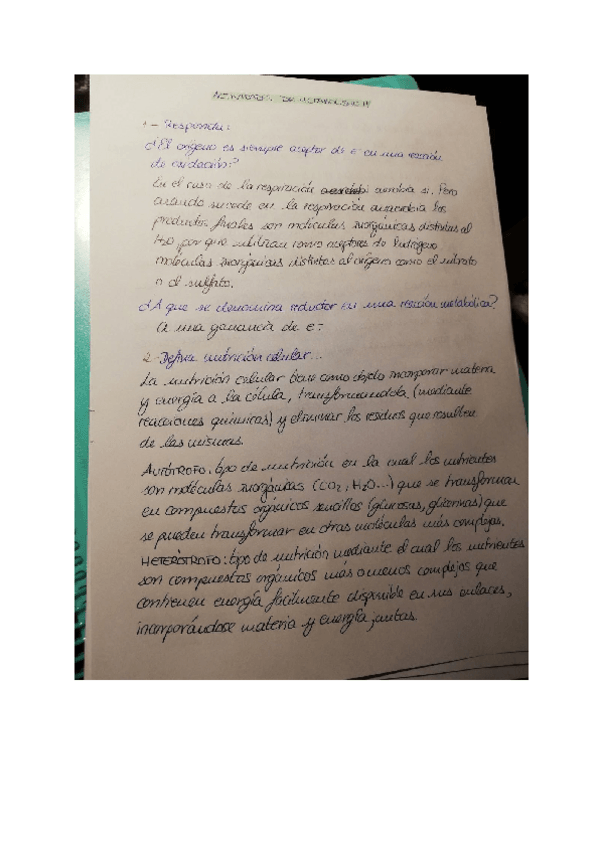 ACTIVIDADES DE METABOLISMO
1 - Responde:
¿El oxígeno es siempre aceptor de e- en una reacción
de oxidación?
En el caso de la respiración aerobia si. Pero
cuando sucede en la respiración anaerobia los
productos finales son moléculas inorgánicas distintas al
H2O, por que utilizan como aceptores de hidrógeno
moléculas inorgánicas distintas al oxígeno como el nitrato
o el sulfato.
¿A que se denomina reductor en una reacción metabólica?
A una ganancia de e-
2 - Define nutrición celular...
La nutrición celular tiene como objeto incorporar materia
y energía a la célula, transformandola (mediante
reacciones químicas) y eliminar los residuos que resulten
de las mismas.
AUTÓTROFO: tipo de nutrición en la cual los nutrientes
son moléculas inorgánicas (CO2, H2O...) que se transforman
en compuestos orgánicos sencillos (glucosas, glicerinas) que
se pueden transformar en otras moléculas más complejas.
HETERÓTROFO: tipo de nutrición mediante el cual los nutrientes
son compuestos orgánicos más o menos complejos que
contienen energía facilmente disponible en sus enlaces,
incorporándose materia y energía juntas.